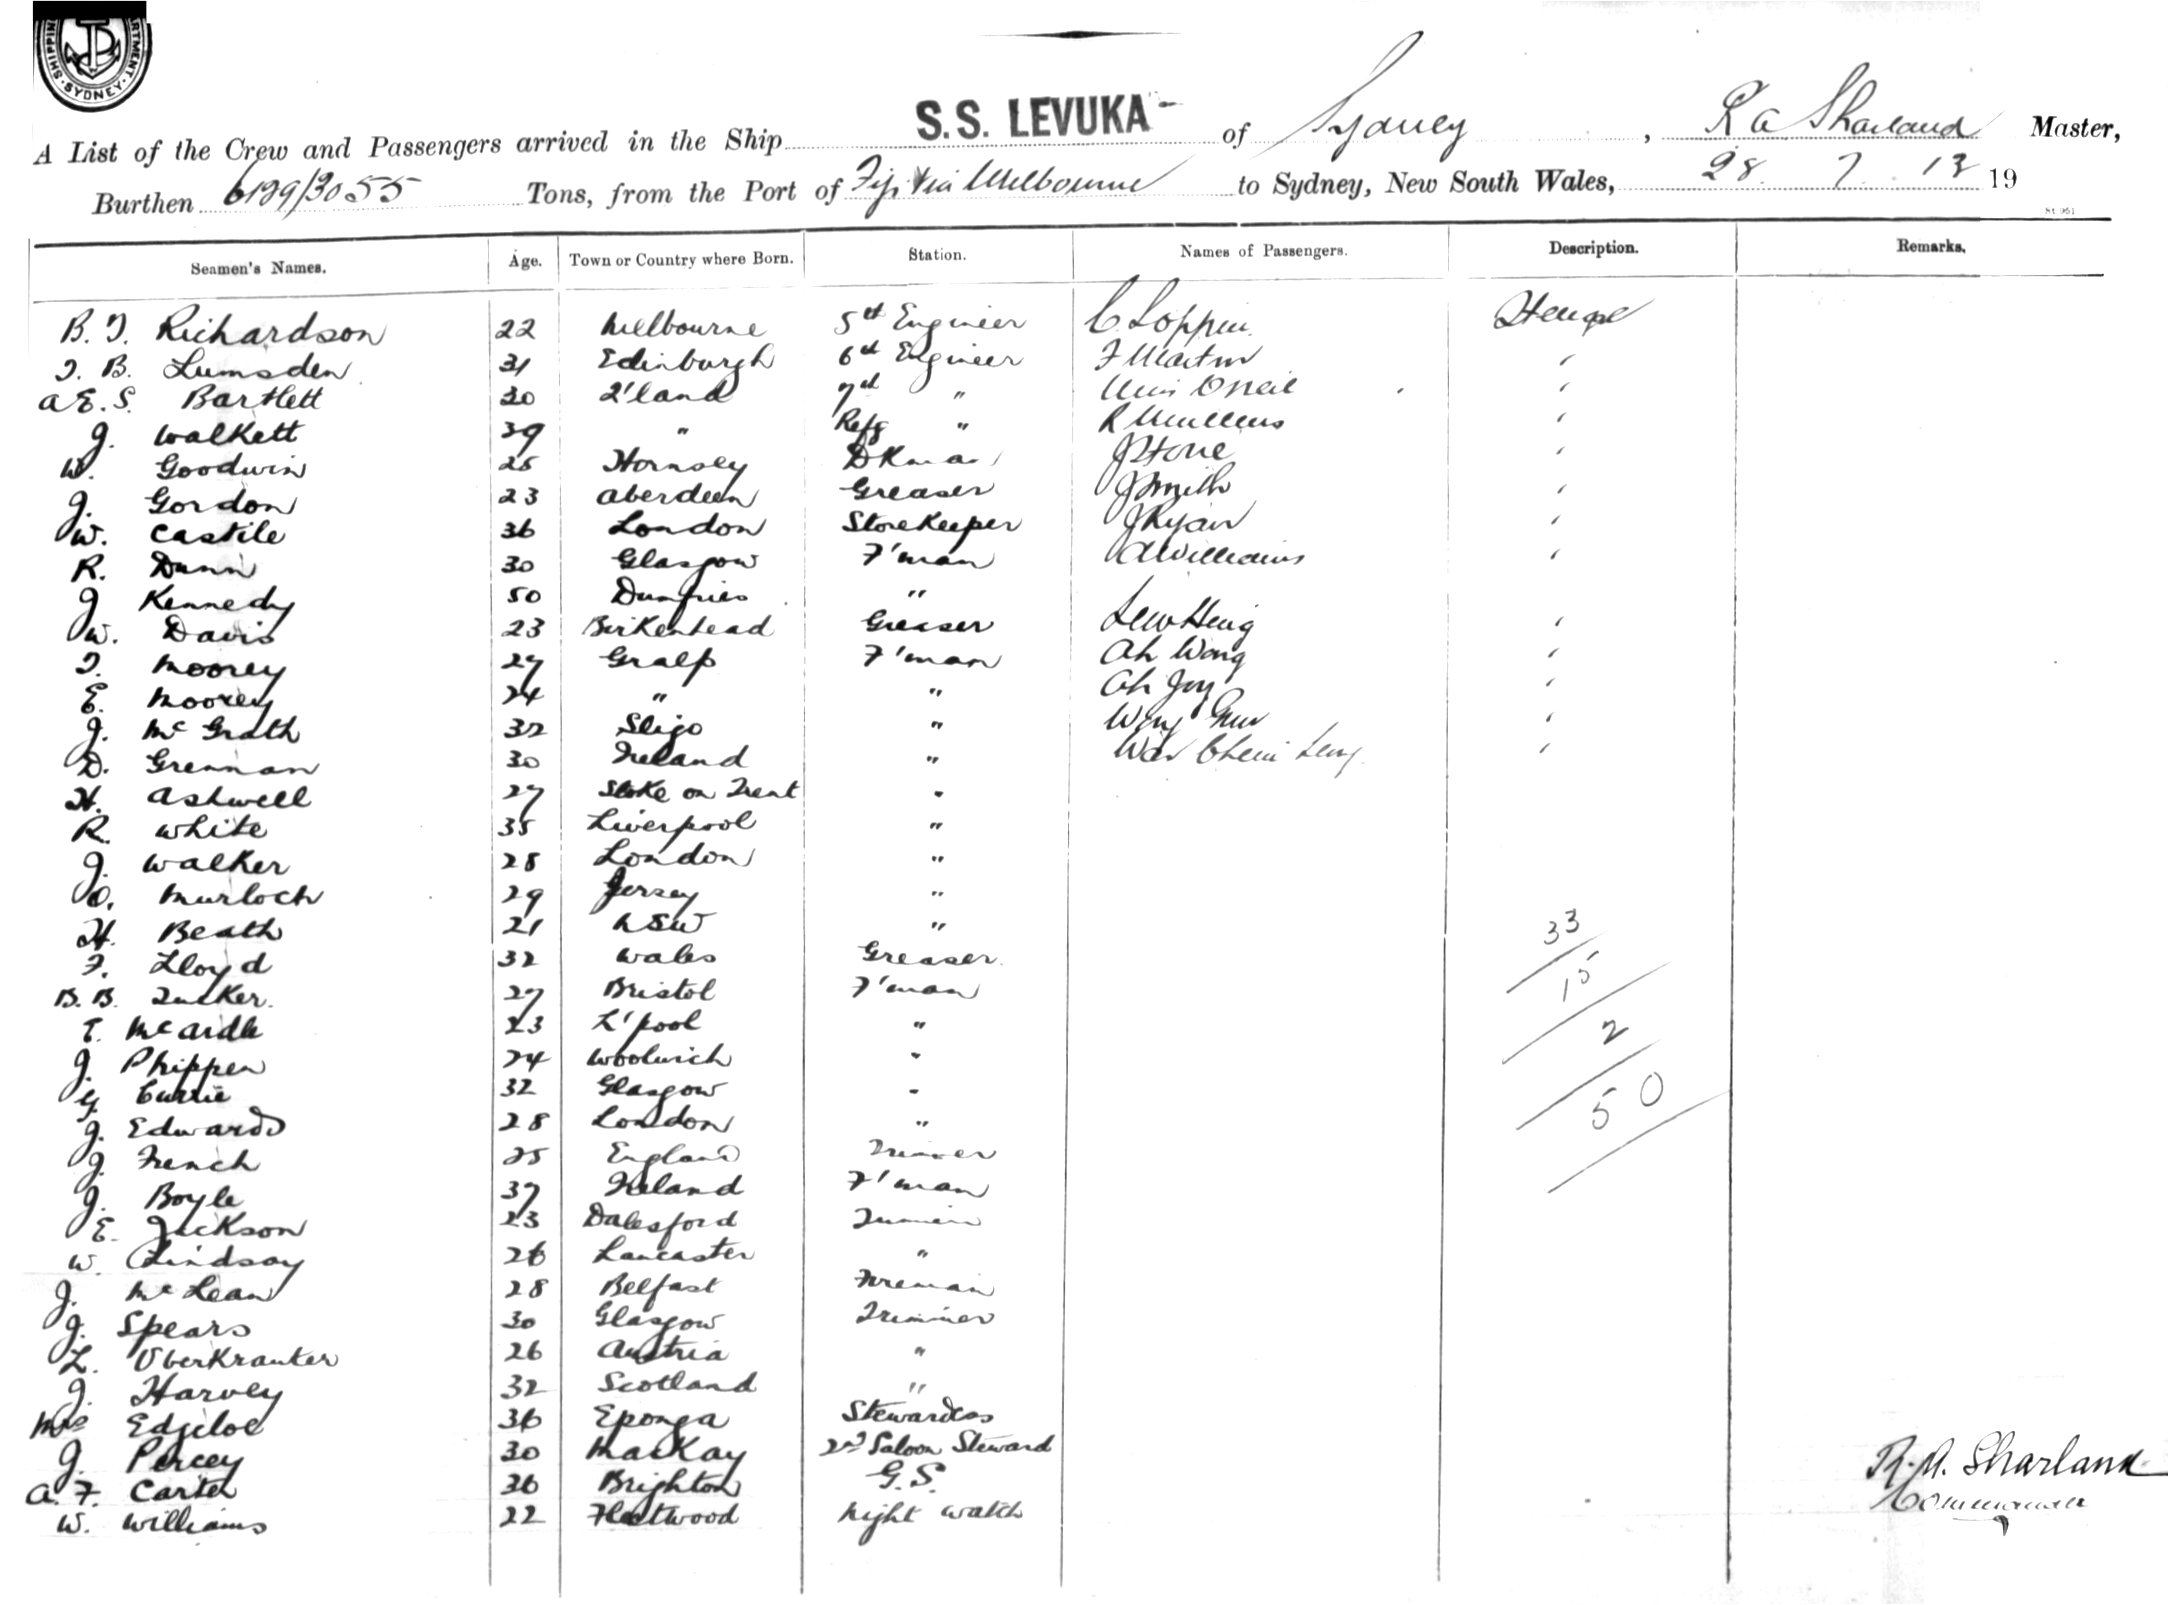 SHIPPING DEPARTMENT SYDNEY
A List of the Crew and Passengers arrived in the Ship S.S. LEVUKA of Sydney, R A Sharland Master,
Burthen 6129/3055 Tons, from the Port of Fiji Via Melbourne to Sydney, New South Wales, 28. 7. 13 19
Seamen's Names. Age. Town or Country where Born. Station. Names of Passengers. Description. Remarks.
B. T. Richardson 22 Melbourne 5th Engineer C.
T. B. Lumsden 31 Edinburgh 6th Engineer F Martin '
A E. S. Bartlett 30 Q'land 7th " Miss O'Neil '
J. Walkett 39 " Refg " R Mullens '
W. Goodwin 25 Hornsey DKman J Stone '
J. Gordon 23 Aberdeen Greaser J Smith '
W. Castile 36 London StoreKeeper J Ryan '
R. Dunn 30 Glasgow F'man A Williams '
J Kennedy 50 Dumfries "
W. Davis 23 Birkenhead Greaser Lew Hing '
T. Moorey 27 F'man Ah Wong '
E. Moorey 24 " " Ah Joy '
J. McGrath 32 Sligo " Wing '
D. Grennan 30 Ireland " War '
H. Ashwell 27 Stoke on Trent "
R. White 35 Liverpool "
J. Walker 28 London "
O. Murloch 29 Jersey "
H. Beath 21 NSW " 33
F. Lloyd 32 Wales Greaser 15
B. B. Tucker. 27 Bristol F'man
E. McArdle 23 L'pool " 2
J. Phippen 24 Woolwich "
G. Currie 32 Glasgow " 50
J. Edwards 28 London "
J. French 25 England Trimmer
J. Boyle 37 Ireland F'man
E. Jackson 23 Dalesford Trimmer
W. Lindsay 26 Lancaster "
J. McLean 28 Belfast Fireman
J. Spears 30 Glasgow Trimmer
L. Uberkrauter 26 Austria "
J. Harvey 32 Scotland "
Mrs Edgeloe 36 Eponga Stewardess
J. Percey 30 MacKay 2nd Saloon Steward R. A. Sharland
A. F. Carter 36 Brighton G.S. Commander
W. Williams 22 Fleetwood Night watch